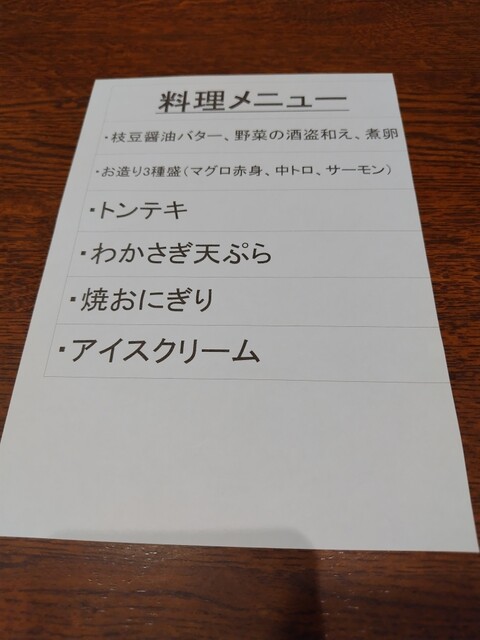 料理メニュー
・枝豆醤油バター、野菜の酒盗和え、煮卵
・お造り3種盛(マグロ赤身、中トロ、サーモン)
・トンテキ
・わかさぎ天ぷら
・焼おにぎり
・アイスクリーム